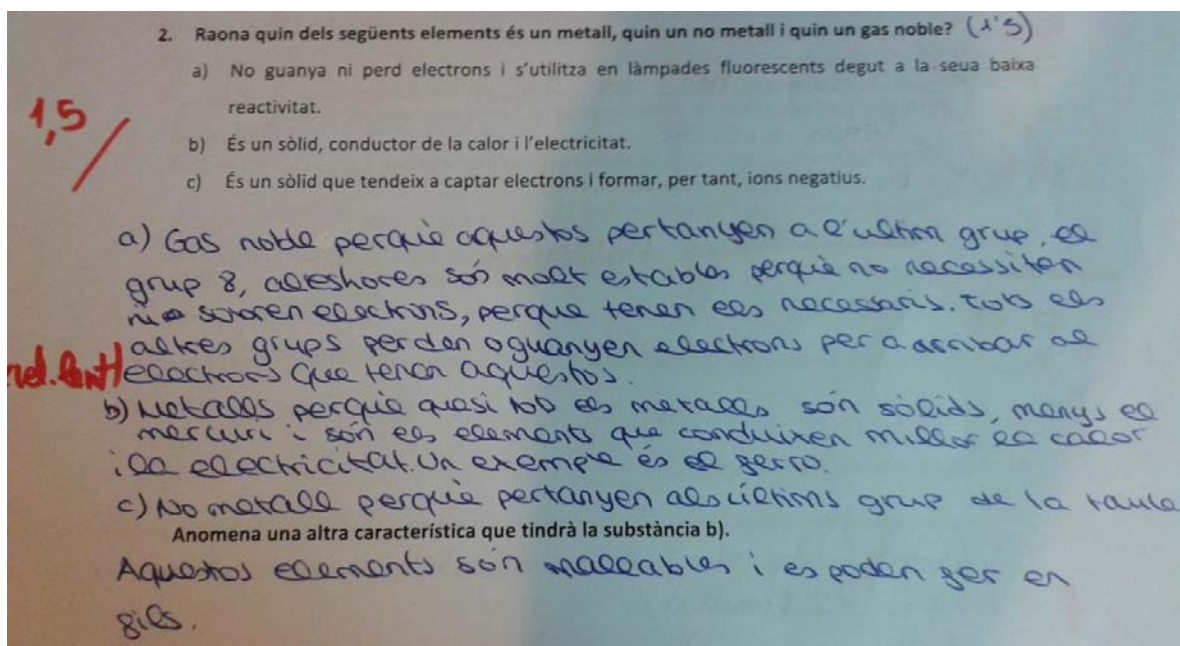 2. Raona quin dels següents elements és un metall, quin un no metall i quin un gas noble? (1'5)
a) No guanya ni perd electrons i s'utilitza en làmpades fluorescents degut a la seua baixa
reactivitat.
1,5
b) És un sòlid, conductor de la calor i l'electricitat.
c) És un sòlid que tendeix a captar electrons i formar, per tant, ions negatius.
a) Gas noble perquè aquestos pertanyen a l'ultim grup, el
grup 8, aleshores són molt estables perquè no necessiten
electrons, perque tenen els necessaris. Tots els
altres grups perden o guanyen electrons per a arribar al
electrons que tenen aquestos.
b) Metalls perquè quasi tots els metalls són sòlids, menys el
mercuri i són els elements que conduixen millor la calor
i la electricitat. Un exemple és el ferro.
c) No metall perquè pertanyen als últims grup de la taula
Anomena una altra característica que tindrà la substància b).
Aquestos elements són maleables i es poden fer en
fils.